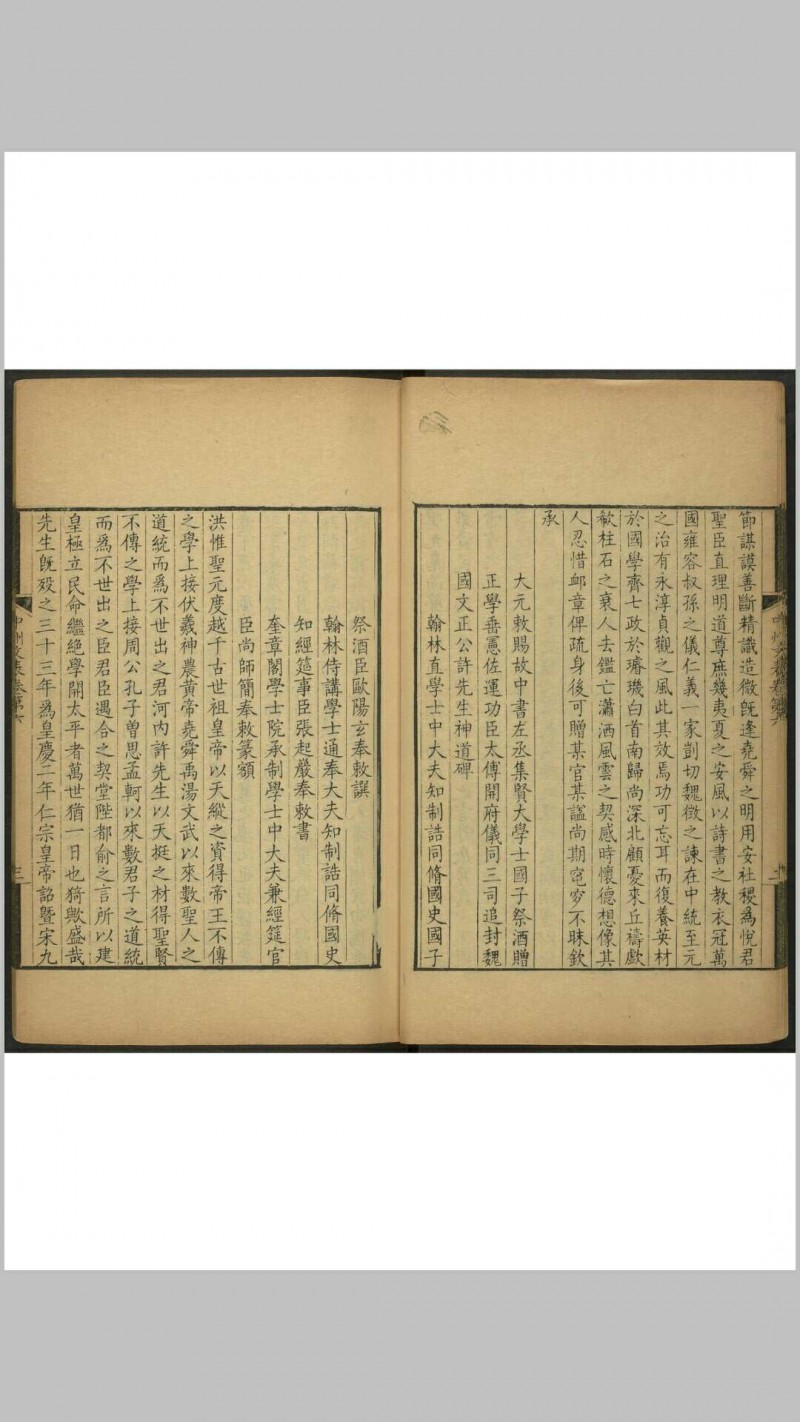 節謀謨善斷精識造微旣逢堯舜之明用安社稷為悅君
聖臣直理明道尊庶幾夷夏之安風以詩書之教衣冠萬
國雍容叔孫之儀仁義一家剴切魏徵之諫在中統至元
之治有永淳貞觀之風此其效焉功可忘耳而復養英材
於國學齊七政於璿璣白首南歸尚深北顧憂來丘禱歔
欷柱石之衰人去鑑亡瀟洒風雲之契感時懷德想像其
人忍惜卹章俾疏身後可贈某官某謚尚期窀穸不昧欽
承
大元敕賜故中書左丞集賢大學士國子祭酒贈
正學垂憲佐運功臣太傅開府儀同三司追封魏
國文正公許先生神道碑
翰林直學士中大夫知制誥同脩國史國子
祭酒臣歐陽玄奉敕譔
翰林侍講學士通奉大夫知制誥同脩國史
知經筵事臣張起巖奉敕書
奎章閣學士院承制學士中大夫兼經筵官
臣尚師簡奉敕篆額
洪惟聖元度越千古世祖皇帝以天縱之資得帝王不傳
之學上接伏羲神農黃帝堯舜禹湯文武以來數聖人之
道統而爲不世出之君河內許先生以天挺之材得聖賢
不傳之學上接周公孔子曾思孟軻以來數君子之道統
而爲不世出之臣君臣遇合之契堂陛都俞之言所以建
皇極立民命繼絶學開太平者萬世猶一日也猗歟盛哉
先生旣歿之三十三年爲皇慶二年仁宗皇帝詔曁宋九
中州文表卷第六
三